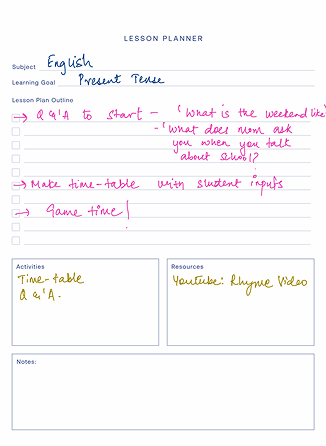 LESSON PLANNER
Subject English
Learning Goal Present Tense
Lesson Plan Outline
→ Q &'A to start - 'What is the weekend like
- 'What does mom ask
you when you talk
about school?
→ Make time-table with student inputs
→ Game time!
Activities
Time-table
Q &'A.
Resources
Youtube: Rhyme Video
Notes: